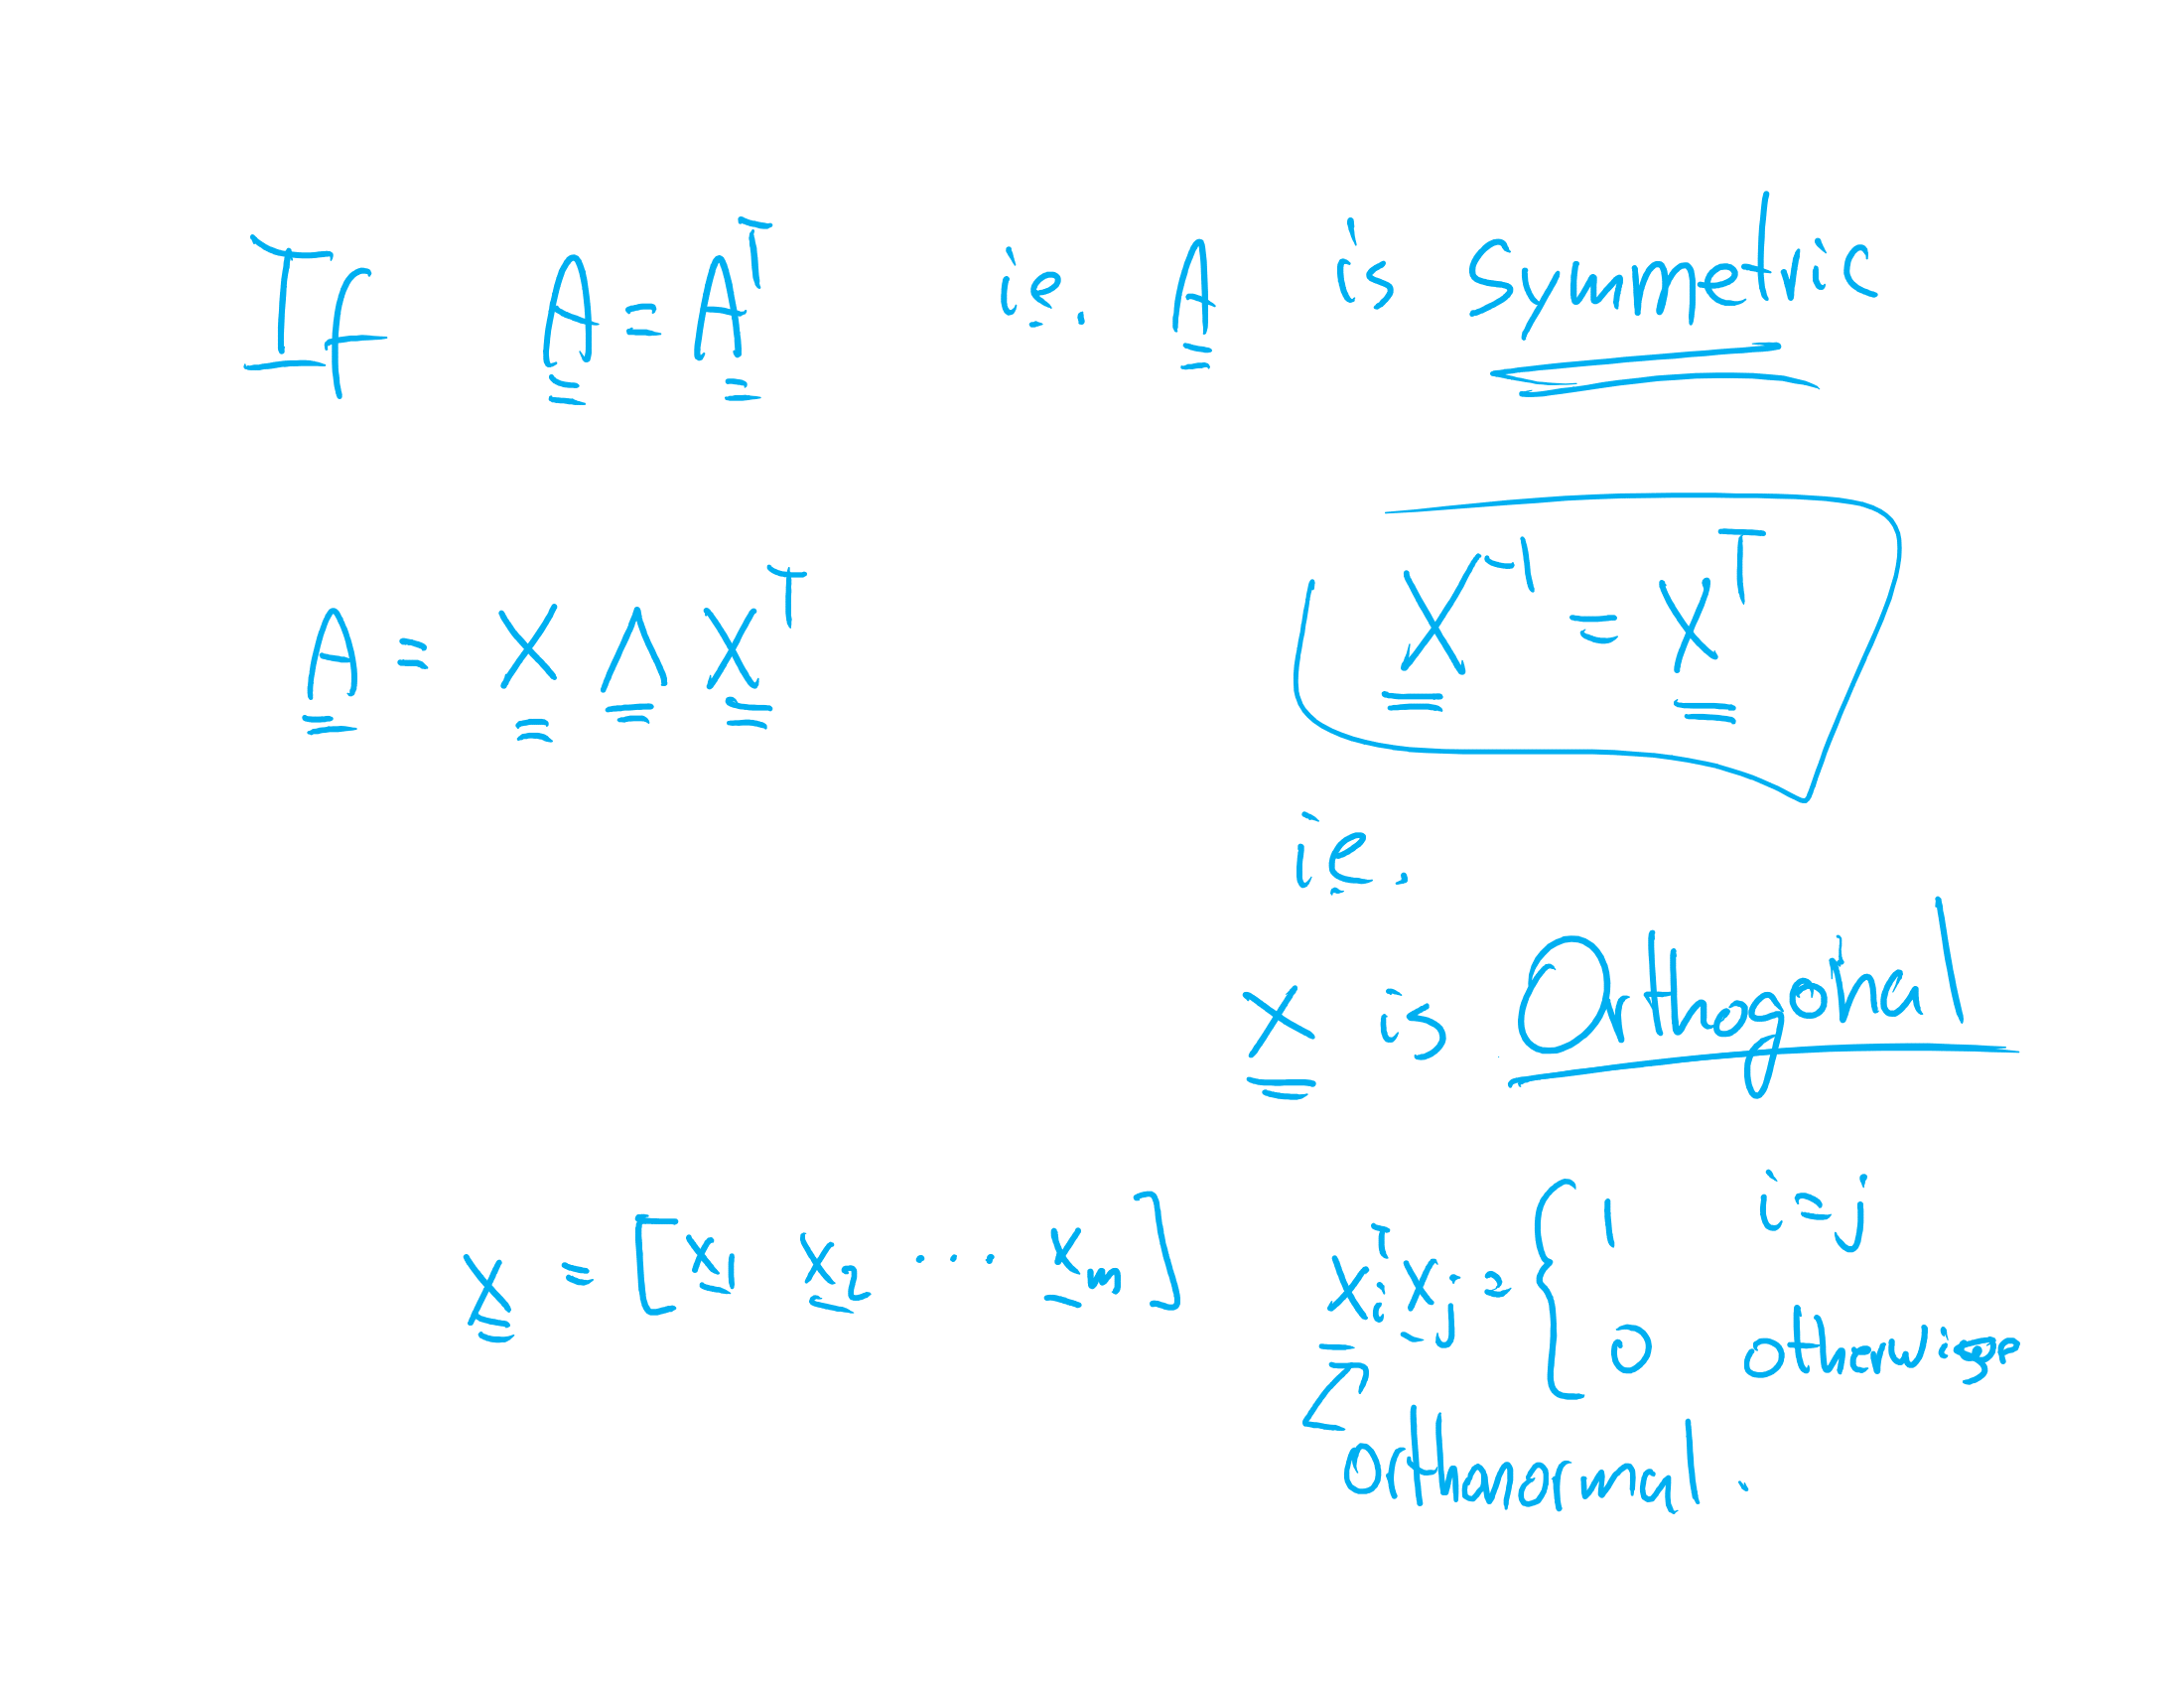 If A = Aᵀ i.e. A is Symmetric
A = X Λ Xᵀ X⁻¹ = Xᵀ
ie.
X is Orthogonal
X = [x₁ x₂ ... xₙ] xᵢᵀ xⱼ = { 1 i = j
0 otherwise
orthnormal.